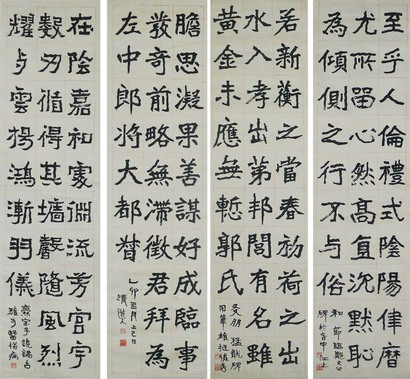 至乎人倫禮式陰陽律曆
尤所留心然高直沈默恥
為傾側之行不与俗
和
若新蘅之當春初荷之出
水入孝出第邦閭有名雖
黃金未應無慚郭氏
膽思凝果善謀好成臨事
發奇前略無滯徵君拜為
左中郎將大都督
清道人
在陰嘉和處淵流芳宮宇
數仞循得其墻聲隨風烈
耀与雲揚鴻漸羽儀